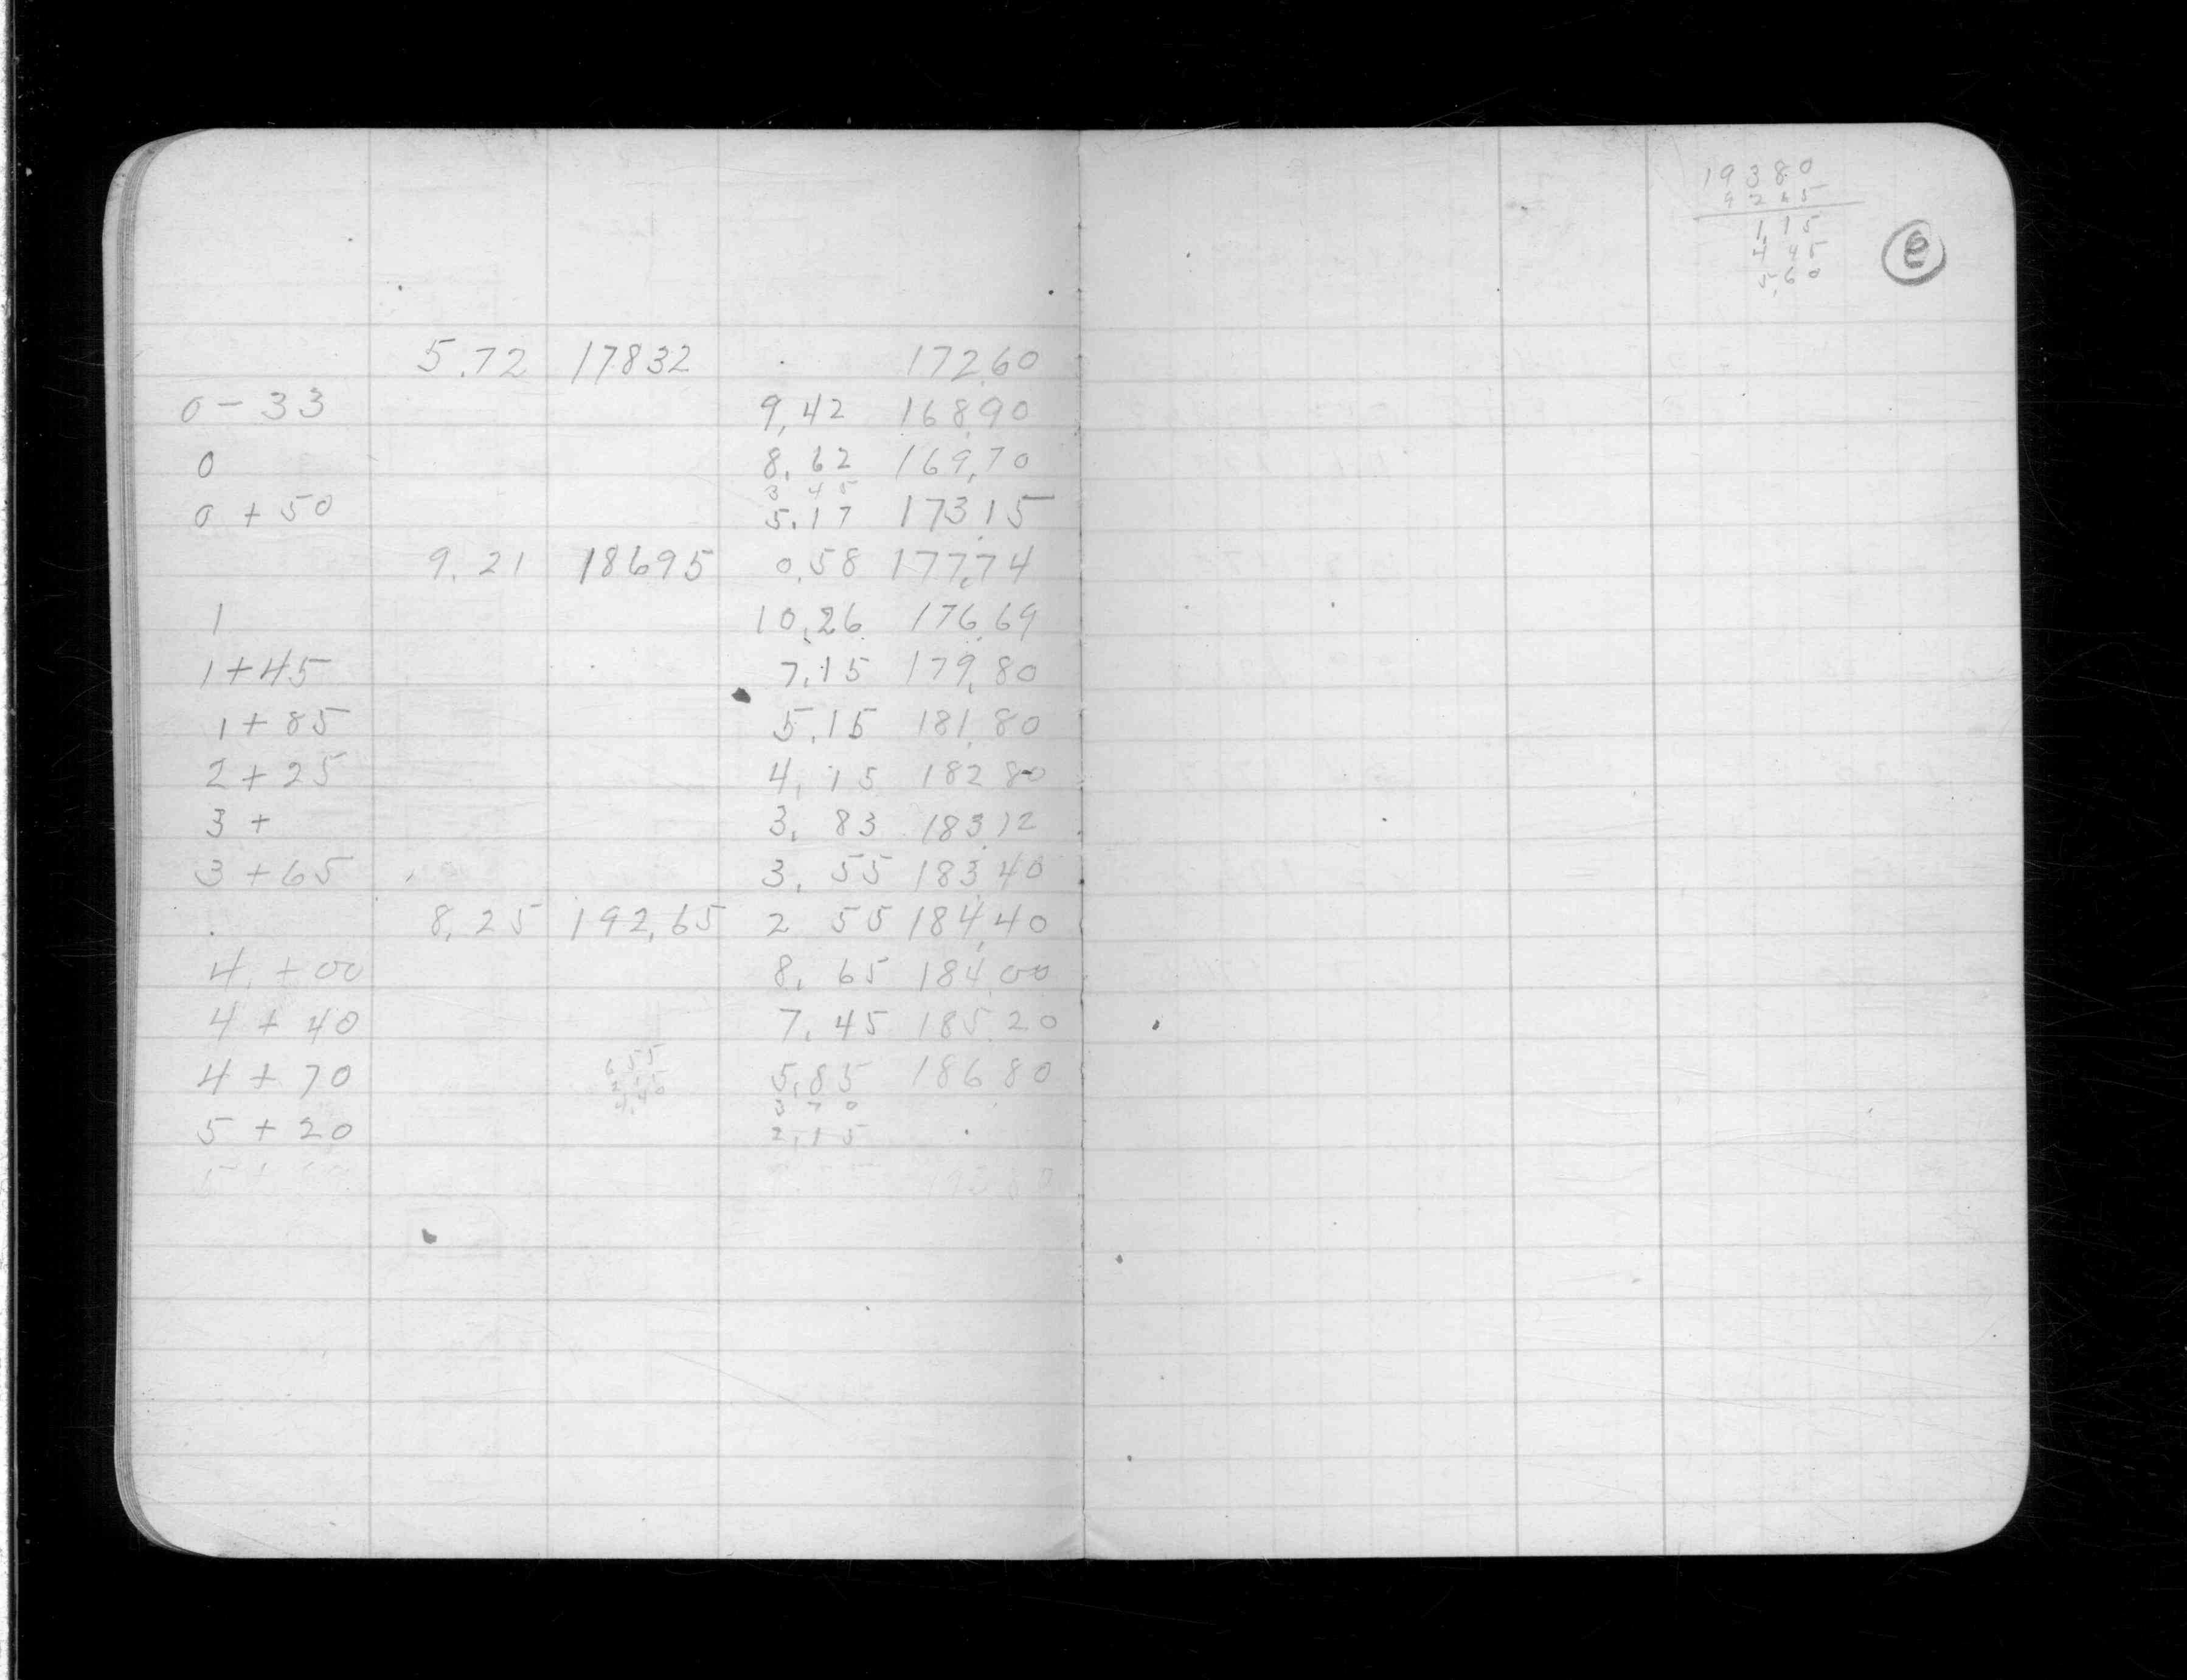 5.72 17832 172.60
0 - 33 9,42 168,90
0 8,62 169,70
3 45
0 + 50 5,17 173,15
9.21 18695 0,58 177,74
1 10,26 176,69
1 + 45 7,15 179,80
1 + 85 5,15 181,80
2 + 25 4,15 182 80
3 + 3,83 183,12
3 + 65 3,55 183,40
8,25 192,65 2 55 184,40
4 + 00 8,65 184,00
4 + 40 7,45 185 20
6 55
4 + 70 5,85 186 80
4,40
3 70
5 + 20 2,15
19380
9265
1,15
4 45
5,60
e